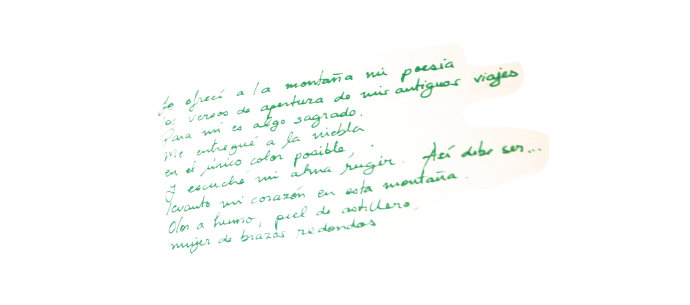 Le ofrecí a la montaña mi poesía
los versos de apertura de mis antiguos viajes
Para mí es algo sagrado.
Me entregué a la niebla
en el único color posible,
Y escuché mi alma rugir. Así debe ser...
levanto mi corazón en esta montaña.
Olor a humo, piel de astillero,
mujer de brazos redondos